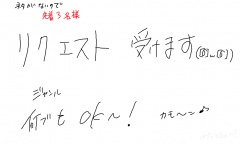 ネタがないので
先着3名様
リクエスト 受けます
ジャンル
何でも OK〜!
カモ〜ン♪